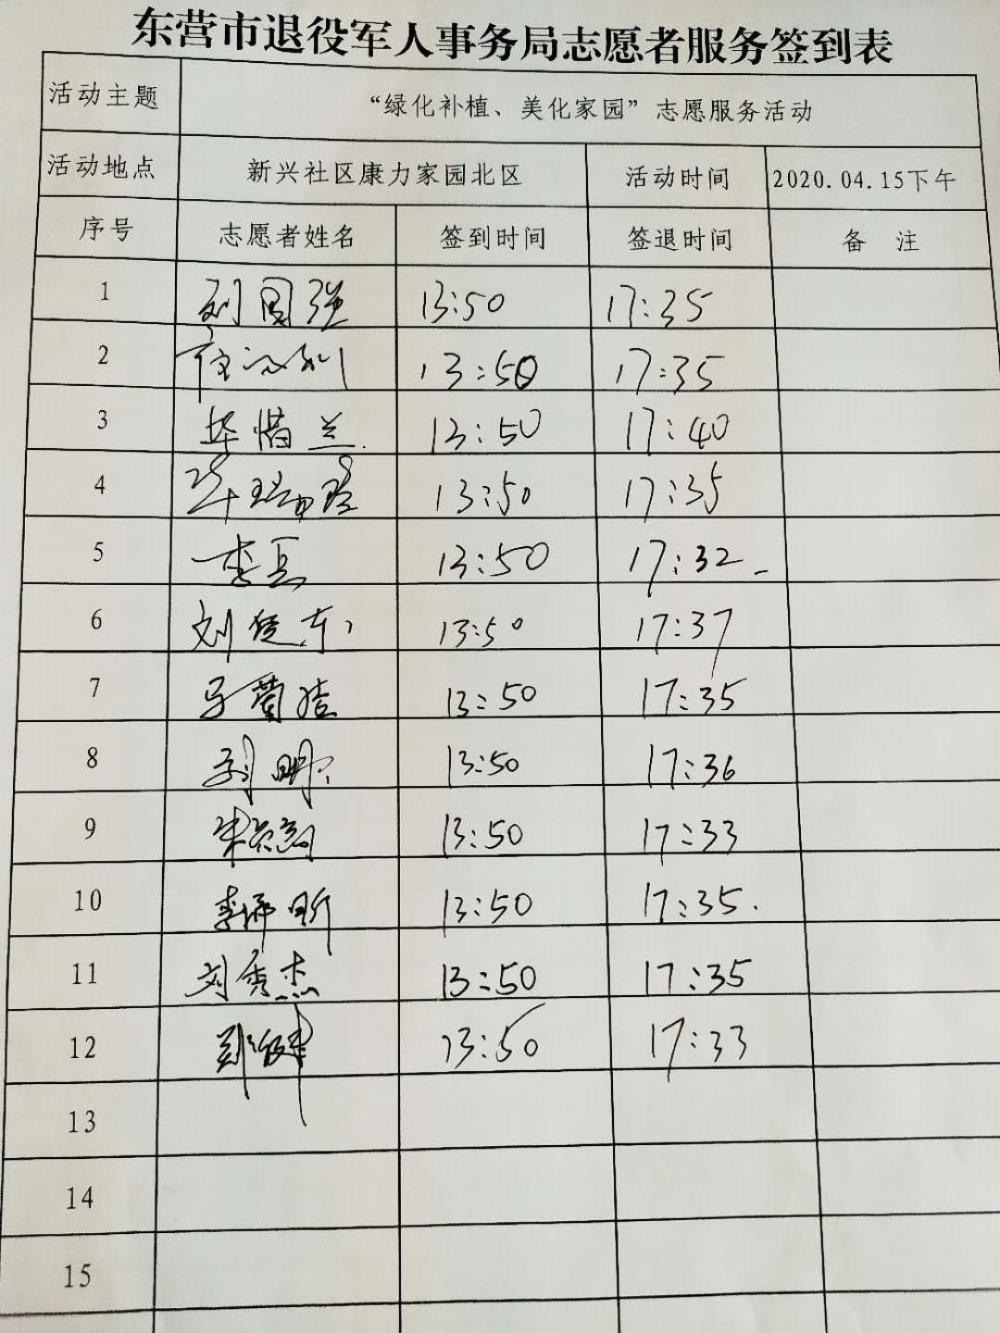 东营市退役军人事务局志愿者服务签到表
活动主题 “绿化补植、美化家园”志愿服务活动
活动地点 新兴社区康力家园北区 活动时间 2020.04.15下午
序号 志愿者姓名 签到时间 签退时间 备 注
1 刘国强 13:50 17:35
2 13:50 17:35
3 毕惜兰 13:50 17:40
4 13:50 17:35
5 13:50 17:32
6 刘 东 13:50 17:37
7 13:50 17:35
8 刘明 13:50 17:36
9 朱 13:50 17:33
10 李 昕 13:50 17:35
11 刘秀杰 13:50 17:35
12 13:50 17:33
13
14
15